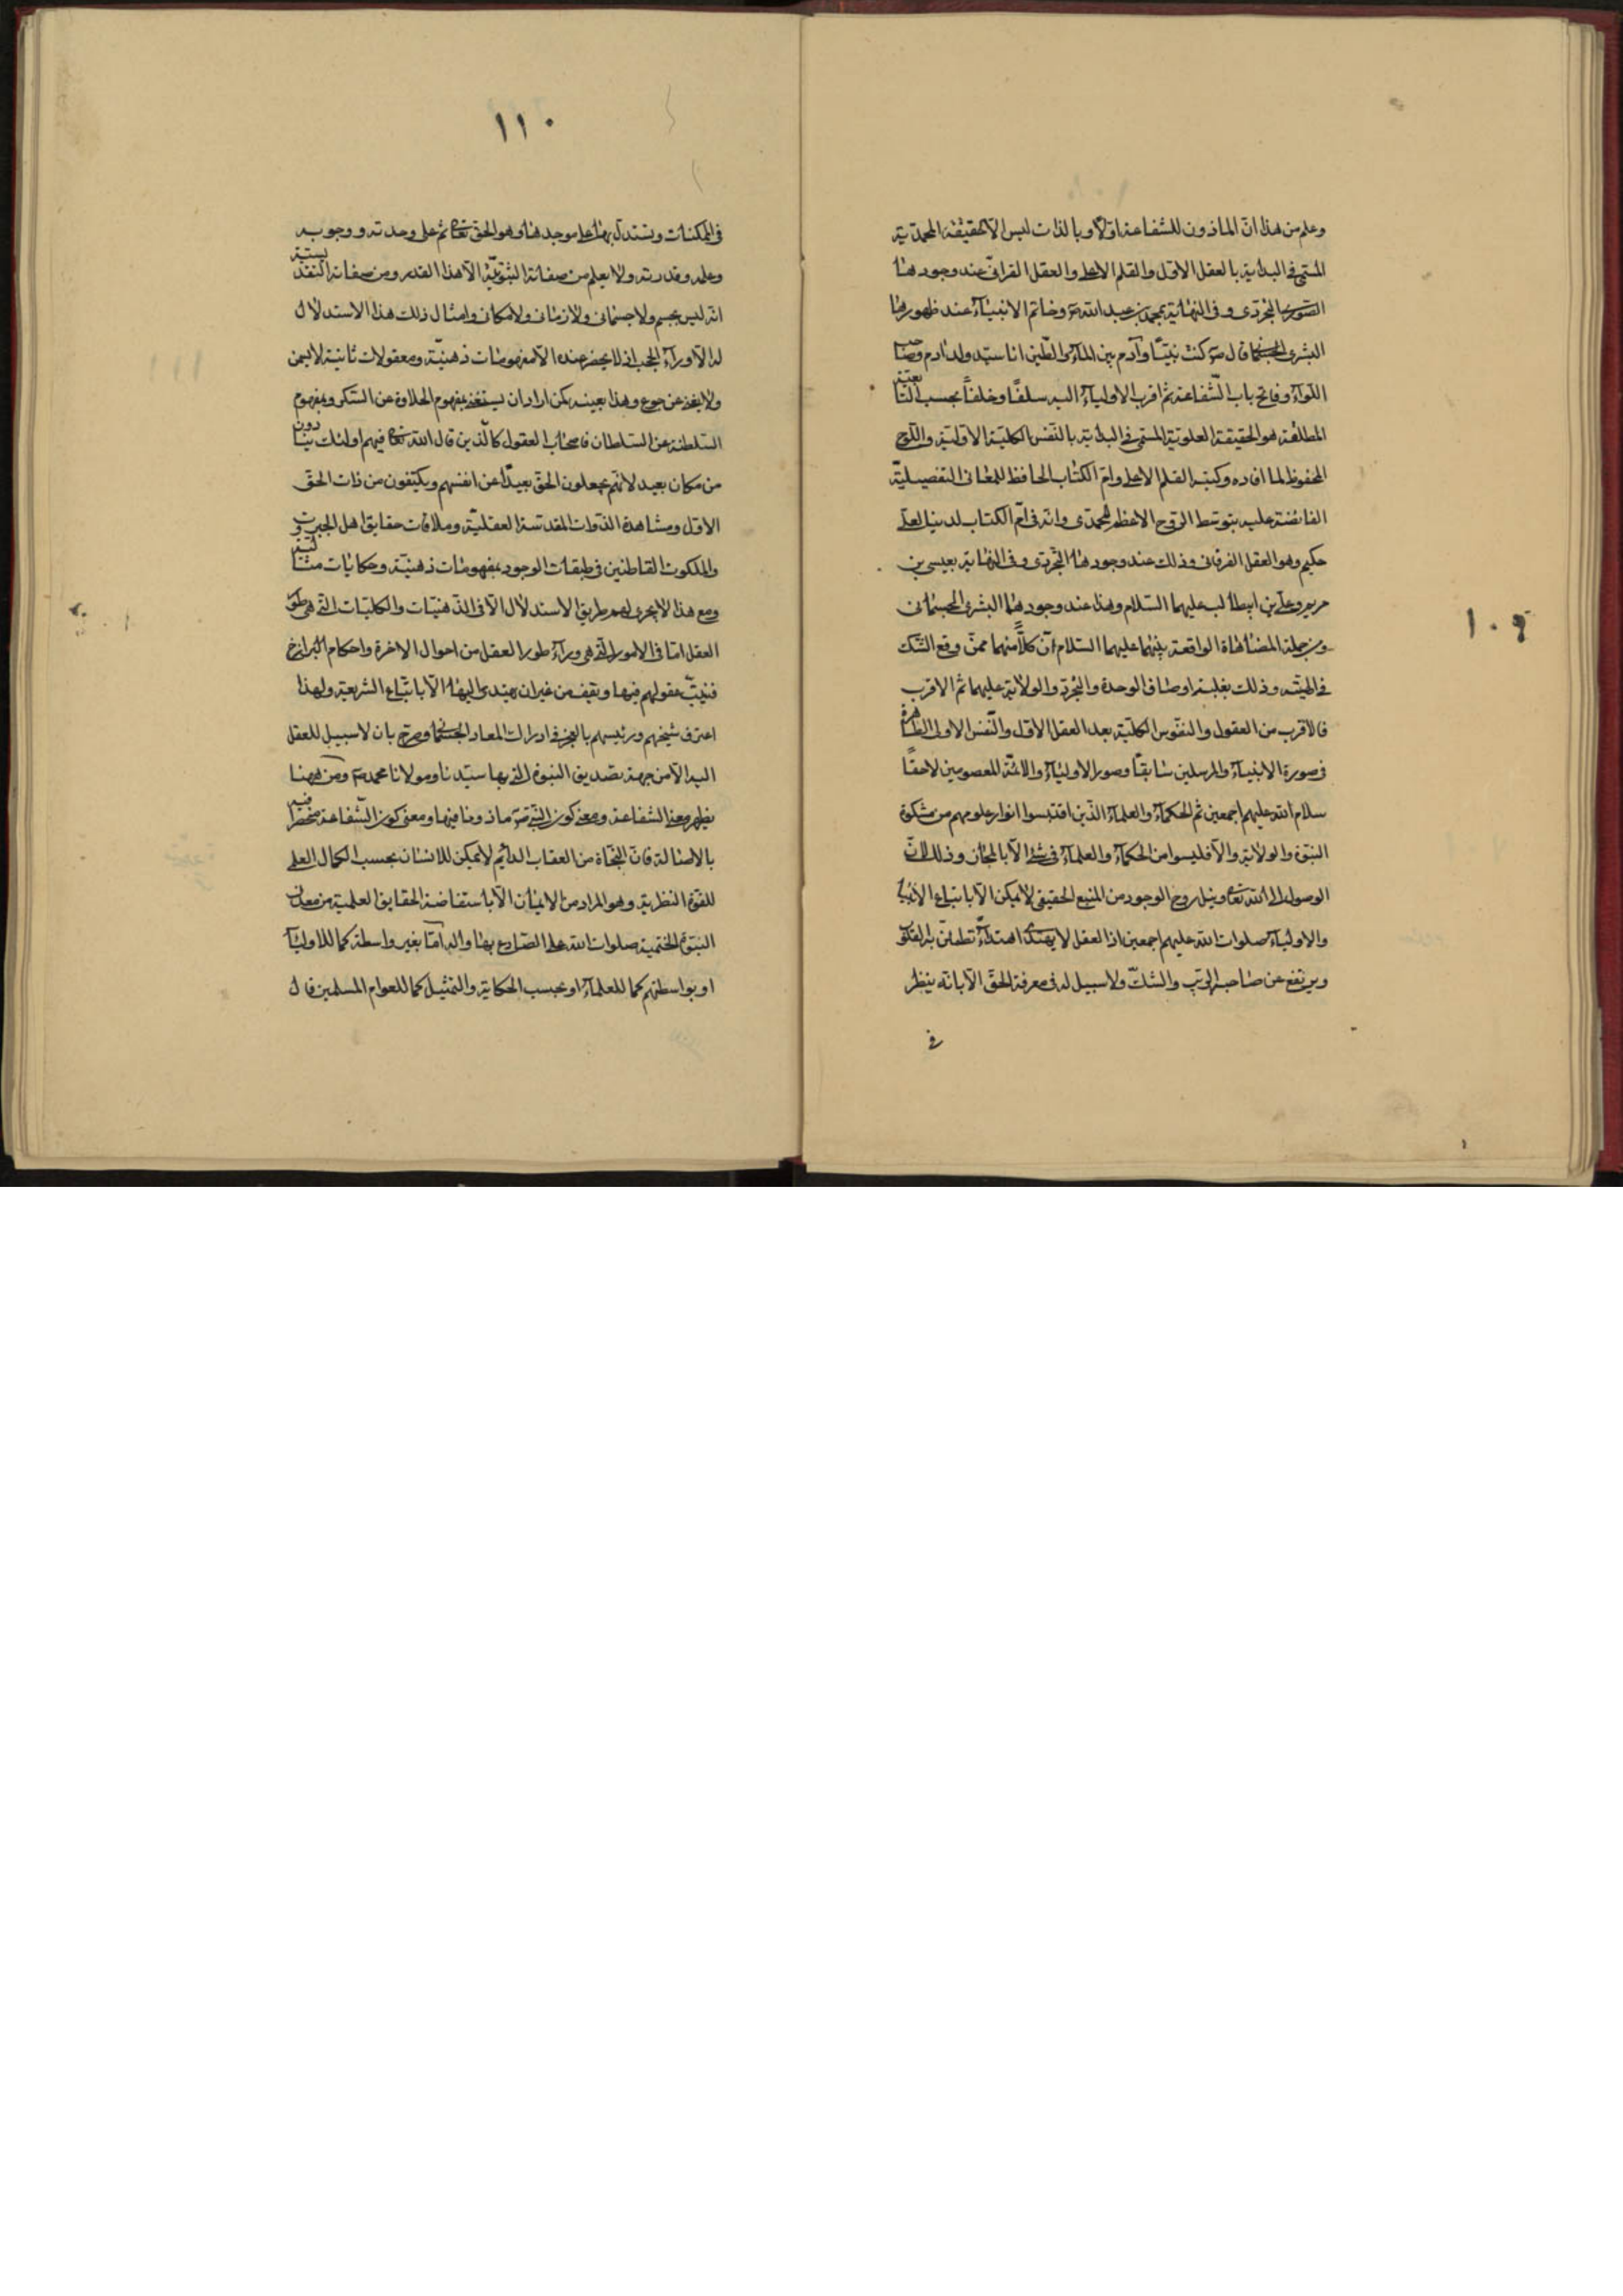 ١٠٩
وعلم من هذا ان الماذون للشفاعة اولا وبالذات ليس الا الحقيقة المحمدية
المسمى فى البداية بالعقل الاول والقلم الاعلى والعقل القرانى عند وجودها
الصورى التجردى وفى النهاية بمحمد بن عبد الله ص وخاتم الانبياء عند ظهورها
البشرى الجسمانى قال ص كنت نبيا وآدم بين الماء والطين انا سيد ولد ادم وصاحب
اللواء وفاتح باب الشفاعة ثم اقرب الاولياء اليه سلفا وخلفا بحسب التابعية
المطلقة هو الحقيقة العلوية المسمى فى البداية بالنفس الكلية الاولية واللوح
المحفوظ لما افاده وكتبه القلم الاعلى وام الكتاب الحافظ للمعانى التفصيلية
الفائضة عليه بتوسط الروح الاعظم المحمدى وانه فى ام الكتاب لدينا لعلى
حكيم وهو العقل الفرقانى وذلك عند وجودها التجردى وفى النهاية بعيسى بن
مريم وعلى بن ابيطالب عليهما السلام وهذا عند وجودهما البشرى الجسمانى
ومن جملة المضاهاة الواقعة بينهما عليهما السلام ان كلا منهما ممن وقع الشك
فى الهيته وذلك بغلبة اوصاف الوحدة والتجرد والولاية عليهما ثم الاقرب
فالاقرب من العقول والنفوس الكلية بعد العقل الاول والنفس الاولى الظاهرة
فى صورة الانبياء والمرسلين سابقا وصور الاولياء والائمة المعصومين لاحقا
سلام الله عليهم اجمعين ثم الحكماء والعلماء الذين اقتبسوا انوار علومهم من مشكوة
النبوة والولاية والا فليسوا من الحكماء والعلماء فى شئ الا بالمجاز وذلك لان
الوصول الى الله تعالى ونيل روح الوجود من المنبع الحقيقى لا يمكن الا باتباع الانبياء
والاولياء صلوات الله عليهم اجمعين اذ العقل لا يهتدى اهتداء تطمئن به القلوب
ويرتفع عن صاحبه الريب والشك ولا سبيل له فى معرفة الحق الا بانه ينظر
فى
١١٠
فى الممكنات ويستدل بها على موجدها وهو الحق تعالى ثم على وحدته ووجوبه
وعلمه وقدرته ولا يعلم من صفاته الثبوتية الا هذا القدر ومن صفاته التقديسية
انه ليس بجسم ولا جسمانى ولا زمانى ولا مكانى وامثال ذلك هذا الاستدلال
له الا وراء الحجب اذ لا يحضر عنده الا مفهومات ذهنية ومعقولات ثانية لا يسمن
ولا يغنى عن جوع وهذا بعينه كمن اراد ان يستغنى بمفهوم الحلاوة عن السكر وبمفهوم
السلطنة عن السلطان فاصحاب العقول كالذين قال الله تعالى فيهم اولئك ينادون
من مكان بعيد لانهم يجعلون الحق بعيدا عن انفسهم ويكتفون من ذات الحق
الاول ومشاهدة الذوات المقدسة العقلية وملاقات حقايق اهل الجبروت
والملكوت القاطنين فى طبقات الوجود بمفهومات ذهنية وحكايات مثالية
ومع هذا لا يجرى لهم طريق الاستدلال الا فى الذهنيات والكليات التى هى طور
العقل اما فى الامور التى هى وراء طور العقل من احوال الاخرة واحكام البرازخ
فيثبت عقولهم فيها ويقف من غير ان يهتدى اليها الا باتباع الشريعة ولهذا
اعترف شيخهم ورئيسهم بالعجز فى ادراك المعاد الجسمانى وصرح بان لا سبيل للعقل
اليه الا من جهة تصديق النبوة التى بها سيدنا ومولانا محمد ص ومن ههنا
يظهر معنى الشفاعة ومعنى كون النبى ص ماذونا فيها ومعنى كون الشفاعة منحصرا فيه
بالاصالة فان النجاة من العقاب الدائم لا يمكن للانسان بحسب الكمال العلمى
للقوة النظرية وهو المراد من الايمان الا باستفاضة الحقايق العلمية من معدن
النبوة الختمية صلوات الله على الصادع بها واله اما بغير واسطة كما للاولياء
او بواسطتهم كما للعلماء او بحسب الحكاية والتمثيل كما للعوام المسلمين قال